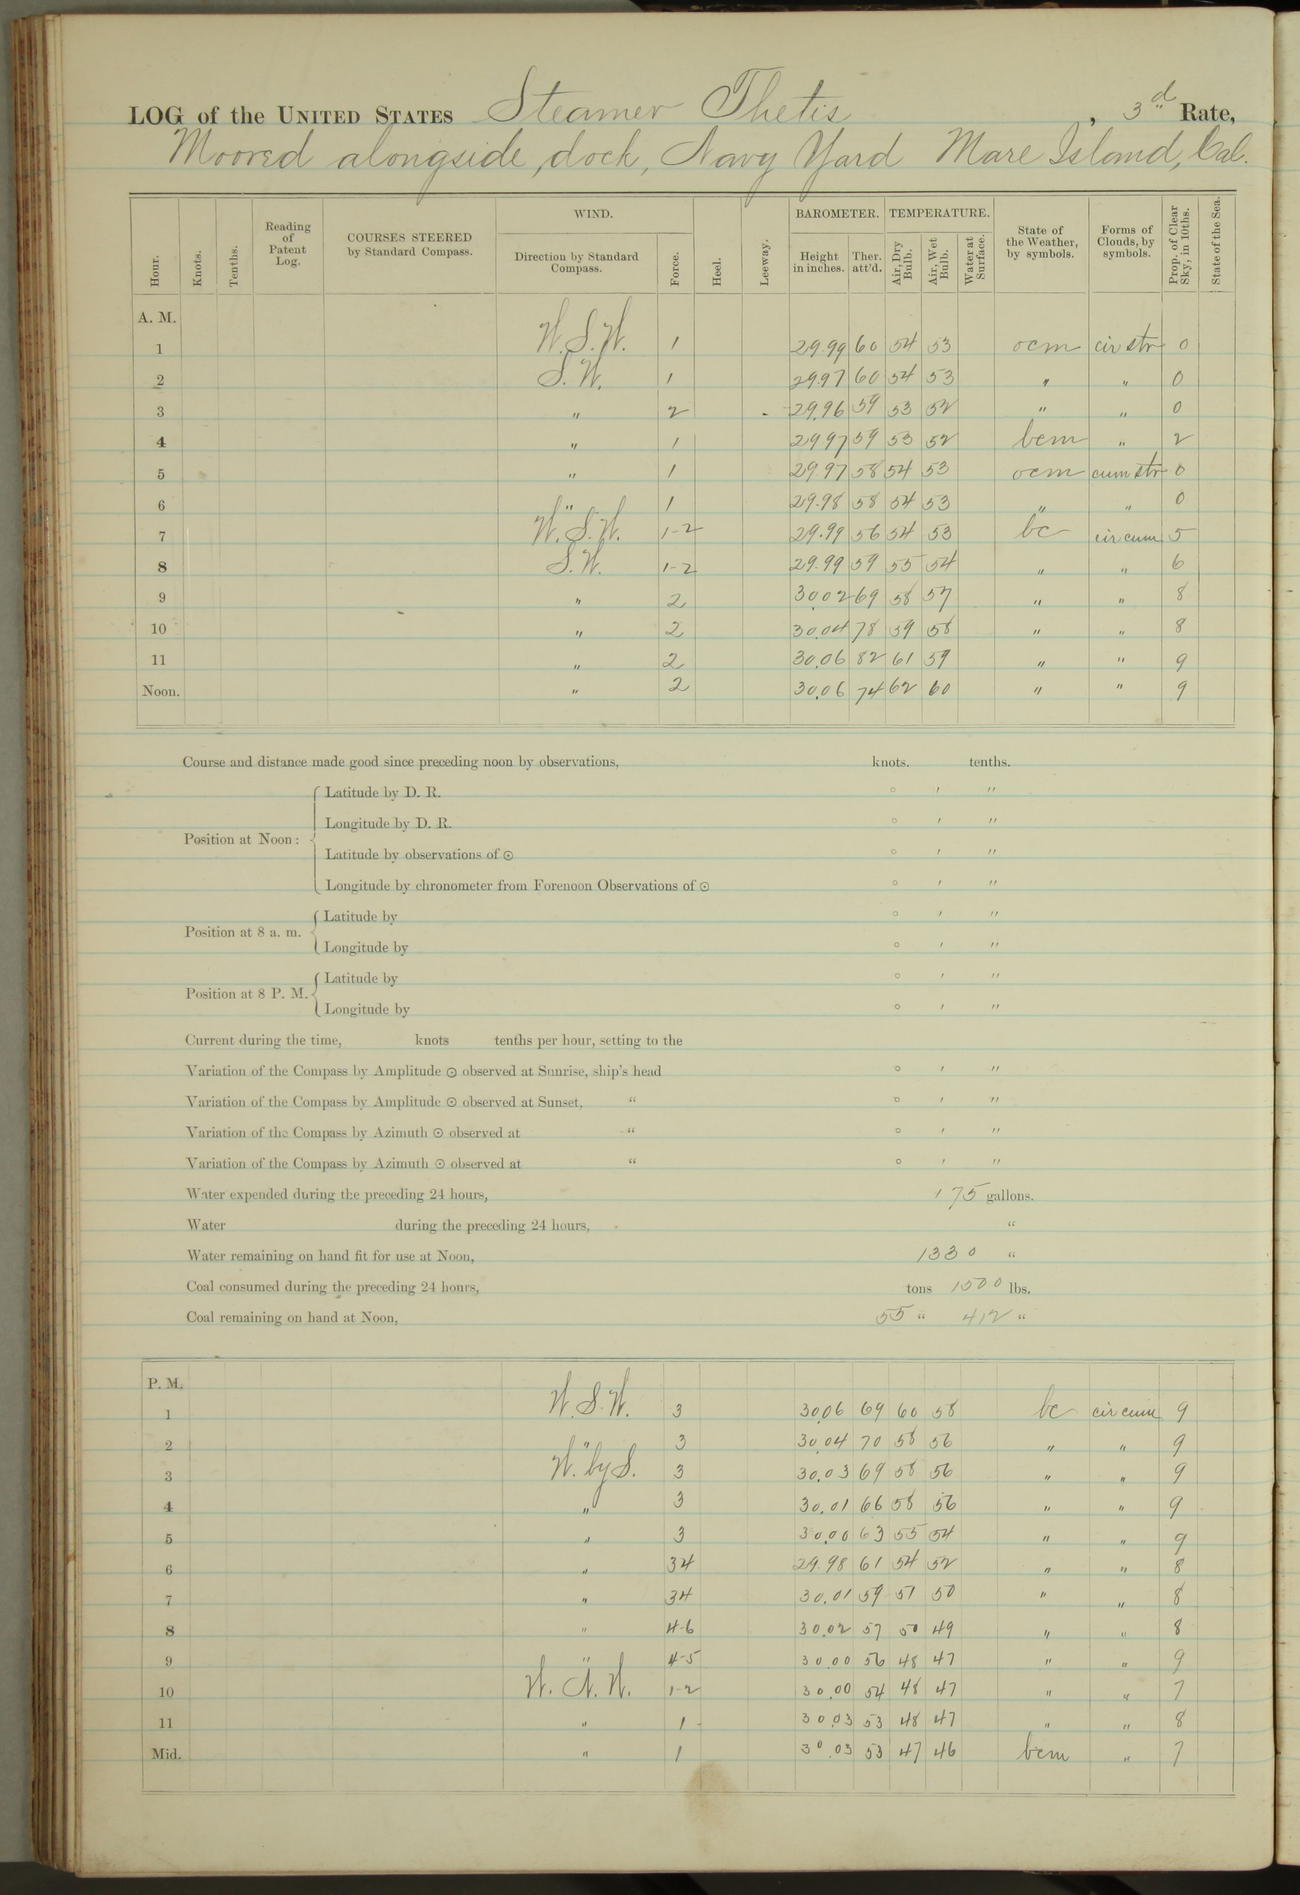 LOG of the UNITED STATES Steamer Thetis, 3d Rate,
Moored alongside dock, Navy Yard Mare Island, Cal.
Hour. Knots. Tenths. Reading of Patent Log. COURSES STEERED by Standard Compass. WIND. Direction by Standard Compass. Force. Heel. Leeway. BAROMETER. Height in inches. Ther. att'd. TEMPERATURE. Air, Dry Bulb. Air, Wet Bulb. Water at Surface. State of the Weather, by symbols. Forms of Clouds, by symbols. Prop. of Clear Sky, in 10ths. State of the Sea.
A. M.
1 W.S.W. 1 29.99 60 54 53 ocm cir str 0
2 S.W. 1 29.97 60 54 53 " " 0
3 " 2 29.96 59 53 52 " " 0
4 " 1 29.97 59 53 52 bcm " 2
5 " 1 29.97 58 54 53 ocm cum str 0
6 " 1 29.98 58 54 53 " " 0
7 W.S.W. 1-2 29.99 56 54 53 bc cir cum 5
8 S.W. 1-2 29.99 59 55 54 " " 6
9 " 2 30.02 69 58 57 " " 8
10 " 2 30.04 78 59 58 " " 8
11 " 2 30.06 82 61 59 " " 9
Noon. " 2 30.06 74 62 60 " " 9
Course and distance made good since preceding noon by observations, knots. tenths.
Latitude by D. R. ° ′ ″
Longitude by D. R. ° ′ ″
Position at Noon:
Latitude by observations of ☉ ° ′ ″
Longitude by chronometer from Forenoon Observations of ☉ ° ′ ″
Latitude by ° ′ ″
Position at 8 a. m.
Longitude by ° ′ ″
Latitude by ° ′ ″
Position at 8 P. M.
Longitude by ° ′ ″
Current during the time, knots tenths per hour, setting to the
Variation of the Compass by Amplitude ☉ observed at Sunrise, ship's head ° ′ ″
Variation of the Compass by Amplitude ☉ observed at Sunset, “ ° ′ ″
Variation of the Compass by Azimuth ☉ observed at “ ° ′ ″
Variation of the Compass by Azimuth ☉ observed at “ ° ′ ″
Water expended during the preceding 24 hours, 175 gallons.
Water during the preceding 24 hours, “
Water remaining on hand fit for use at Noon, 1330 “
Coal consumed during the preceding 24 hours, tons 1500 lbs.
Coal remaining on hand at Noon, 55 “ 412 “
P. M.
1 W.S.W. 3 30.06 69 60 58 bc cir cum 9
2 " 3 30.04 70 58 56 " " 9
3 W. by S. 3 30.03 69 58 56 " " 9
4 " 3 30.01 66 58 56 " " 9
5 " 3 30.00 63 55 54 " " 9
6 " 34 29.98 61 54 52 " " 8
7 " 34 30.01 59 51 50 " " 8
8 " 4-6 30.02 57 50 49 " " 8
9 " 4-5 30.00 56 48 47 " " 9
10 W.N.W. 1-2 30.00 54 48 47 " " 7
11 " 1 30.03 53 48 47 " " 8
Mid. " 1 30.03 53 47 46 bcm " 7